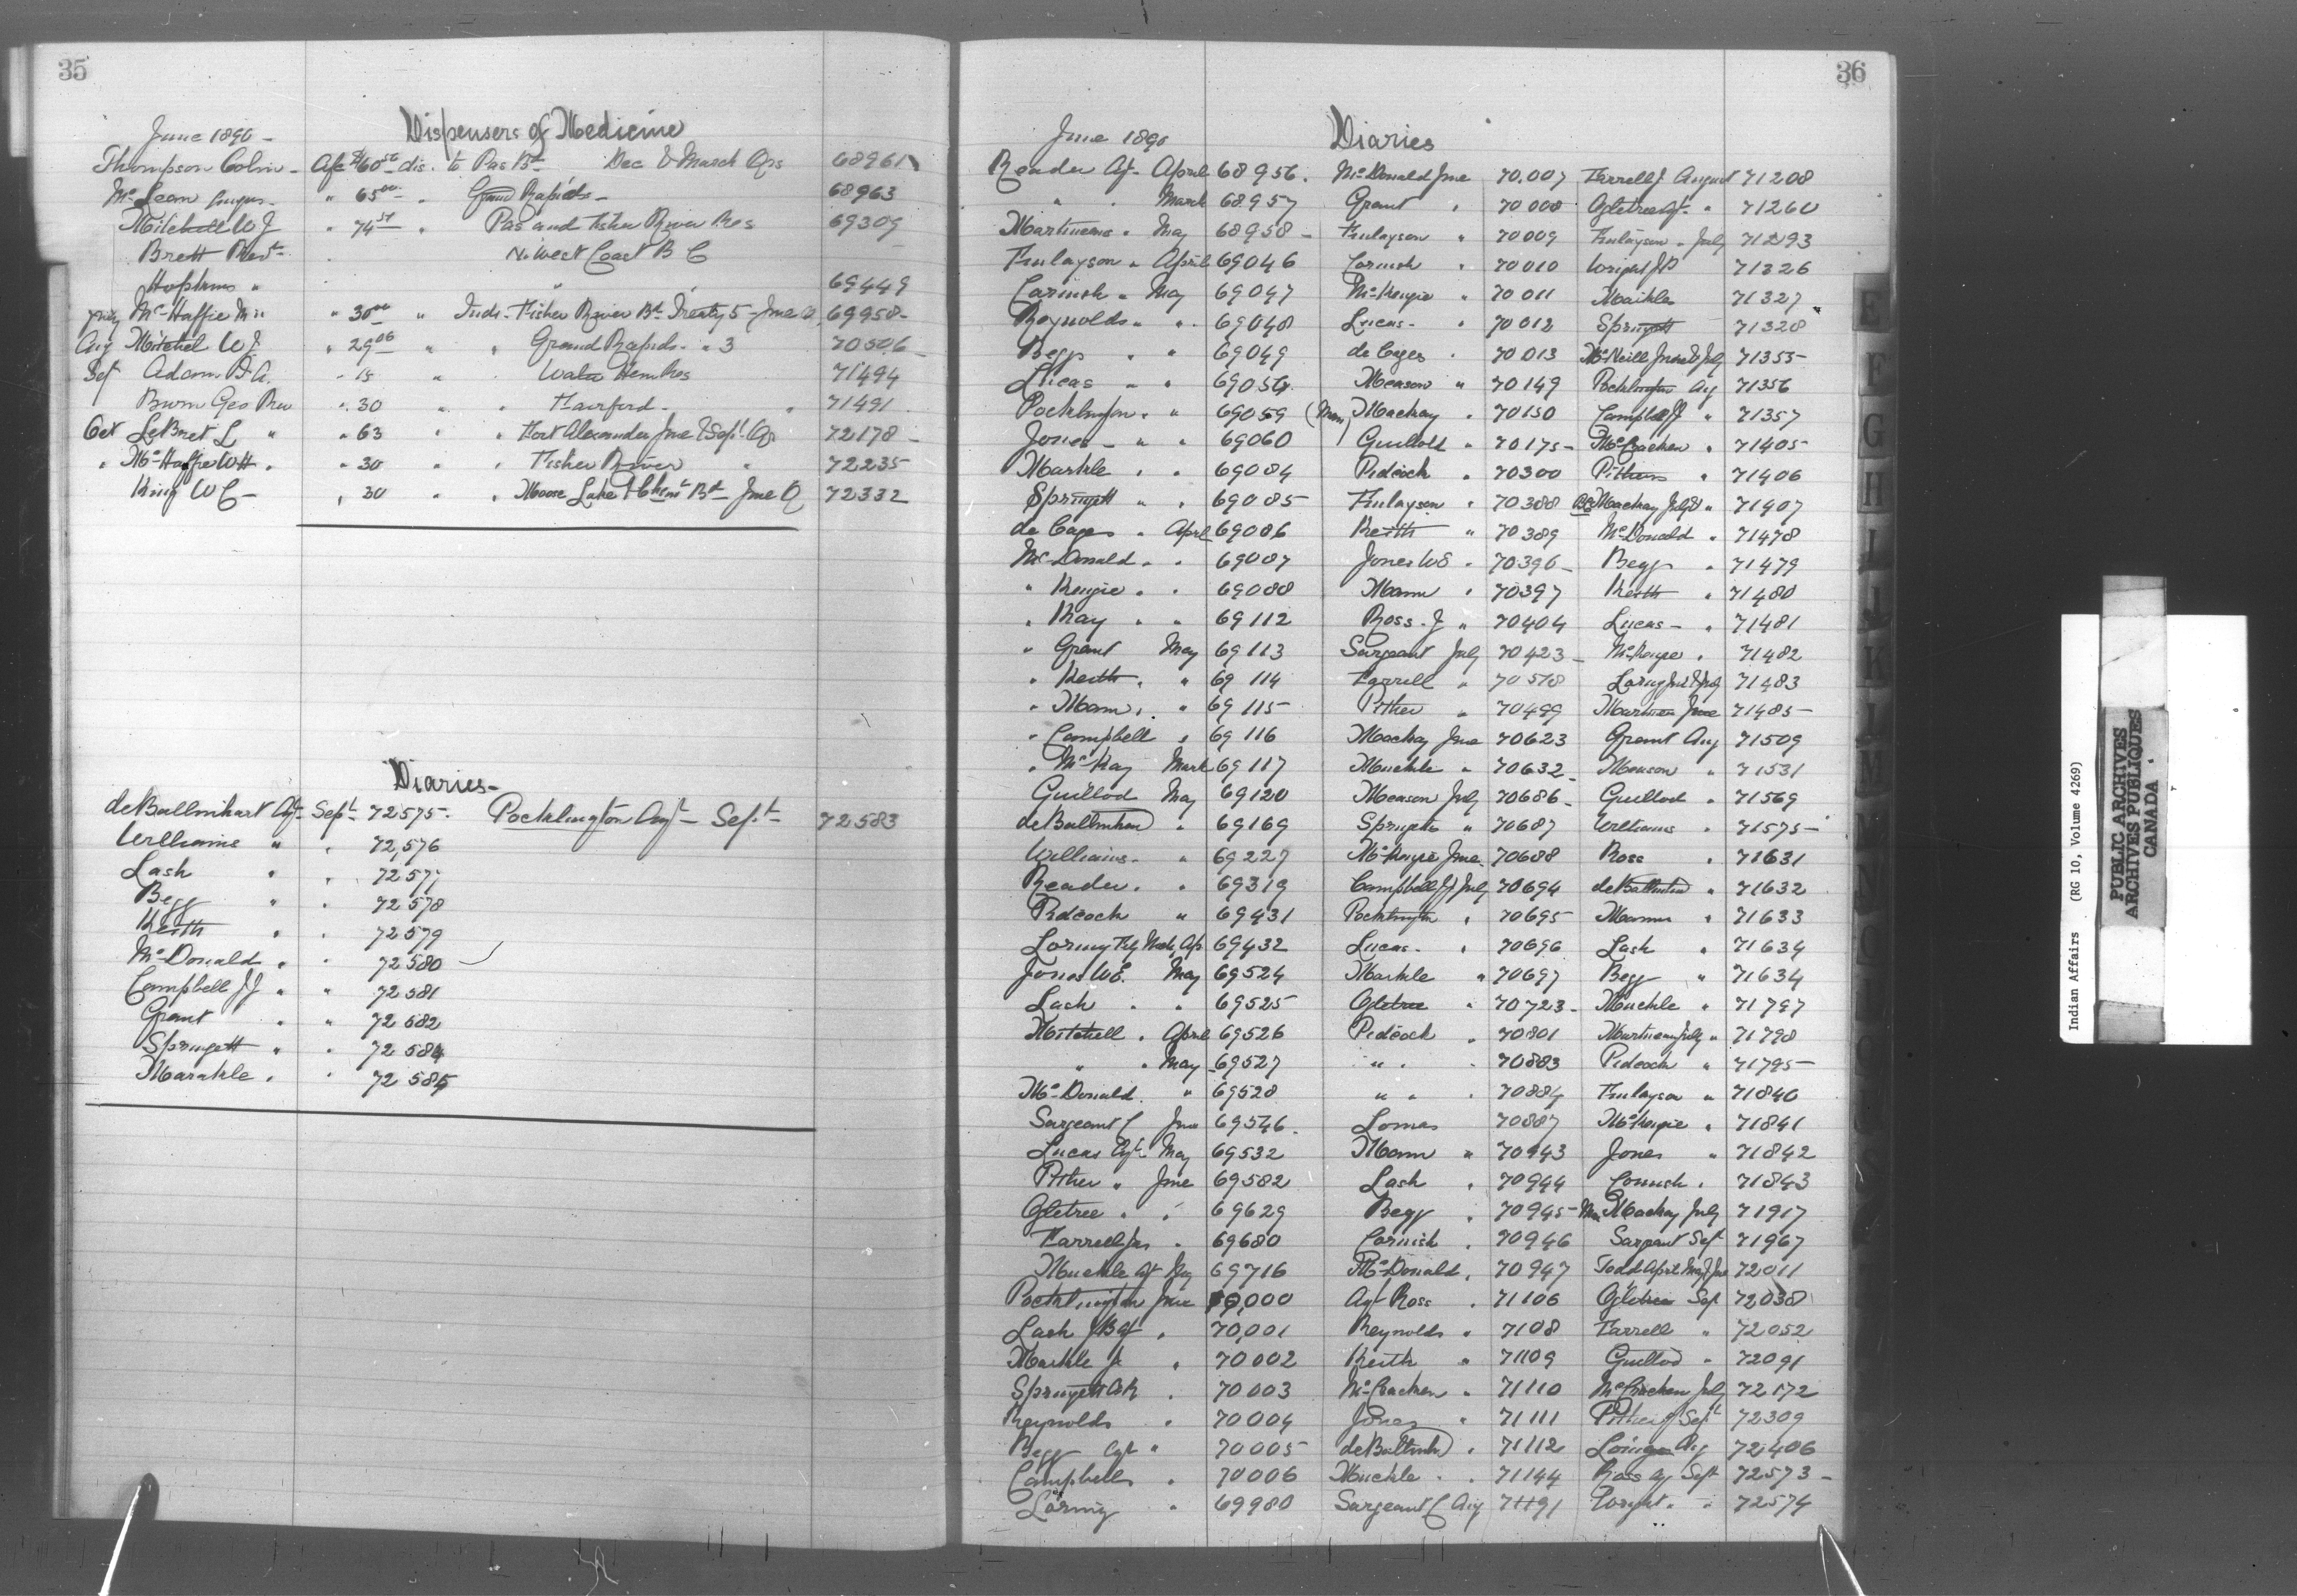 35
Dispensers of Medicine
June 1890 -
Thompson Colin - A/c $60 50 dis. to Pas Bd Dec & March Qrs 68961
McLean Angus - " 65 00 " Grand Rapids - 68963
Mitchell W J " 74 51 " Pas and Fisher River Res 69309
Brett Revd N. West Coast B C
Hopkins " " 69449
July McHaffie " 30 00 " Inds. Fisher River Bd Treaty 5 - June Q. 69958 -
Aug Mitchel W J. " 29 06 " " Grand Rapids - " 3 70506
Sep Adam - 15 " Water Hen Res 71494
Burn Geo Rev " 30 " " Fairford - " 71491
Oct LeBret L " " 63 " " Fort Alexander June & Sept Qr 72178 -
" McHaffie WH " " 30 " " Fisher River " 72235
King W C - " 30 " " Moose Lake Bd June Q 72332
Diaries -
deBallinhart Agt Sept 72575 - Pocklington Agt - Sept 72583
Williams " " 72,576
Lash " " 72577
Begg " " 72578
Keith " " 72579
McDonald " " 72580
Campbell J J " " 72581
Grant " " 72582
Springett " " 72584
Markle " " 72585
36
June 1890 Diaries
Reader Agt April 68956. McDonald June 70,007 Farrell J August 71208
" " March 68957 Grant " 70008 Ogletree Agt " 71260
Martineau " May 68958 - Finlayson " 70009 Finlayson " July 71293
Finlayson " April 69046 Cornish " 70010 Wright JP 71326
Cornish " May 69047 McKenzie " 70011 Markle 71327
Reynolds " " 69048 Lucas - " 70012 Springett 71328
Begg " " 69049 de Cazes " 70013 McNeill June & July 71355 -
Lucas " " 69054 Meason " 70149 Pocklington Aug 71356
Pocklington " " 69059 Mackay " 70150 Campbell J " 71357
Jones - " " 69060 Guillod " 70175 - McCracken " 71405 -
Markle " " 69084 Pidcock " 70300 Pithers " 71406
Springett " " 69085 - Finlayson " 70388 Mackay July & " 71407
de Cazes " April 69086 Keith " 70389 McDonald " 71478
McDonald " " 69087 Jones WE " 70396 - Begg " 71479
" Kenzie " " 69088 Mann " 70397 Keith " 71480
" Kay " " 69112 Ross - J " 70404 Lucas - " 71481
" Grant May 69113 Sargeant July 70423 - McKenzie " 71482
" Keith " " 69 114 Farrell " 70518 Loring June & July 71483
" Mann " " 69 115 - Pither " 70499 Martineau June 71485 -
" Campbell " 69 116 Mackay June 70623 Grant Aug 71509
" McKay March 69 117 Muckle " 70632 - Meason " 71531
Guillod May 69120 Meason July 70686 - Guillod " 71569
deBallinhard " 69169 Springett " 70687 Williams " 71575 -
Williams - " 69227 McKenzie June 70688 Ross " 71631
Reader " " 69319 Campbell JJ July 70694 deBallinhard " 71632
Pidcock " 69431 Pocklington " 70695 Mann " 71633
Loring Feby March, Ap 69432 Lucas - " 70696 Lash " 71634
Jones WE. May 69524 Markle " 70697 Begg " 71634
Lash " " 69525 Ogletree " 70723 - Muckle " 71797
Mitchell " April 69526 Pidcock " 70801 Martineau July " 71798
" " May 69527 " " " 70883 Pidcock " 71795 -
McDonald " 69528 " " " 70884 Finlayson " 71840
Sargeant C June 69546. Lomas 70887 McKenzie " 71841
Lucas Agt May 69532 Mann " 70943 Jones " 71842
Pither " June 69582 Lash " 70944 Cornish " 71843
Ogletree " " 69629 Begg " 70945 - Mackay July 71917
Farrell Jas " 69680 Cornish " 70946 Sargeant Sept 71967
Muckle Agt May 69716 McDonald " 70947 Todd April May & June 72011
Pocklington June 70,000 Agt Ross " 71106 Ogletree Sep 72038
Lash JB Agt " 70,001 Reynolds " 7108 Farrell " 72052
Markle J " 70002 Keith " 71109 Guillod " 72091
Springett AR " 70003 McCracken " 71110 McCracken July 72172
Reynolds " 70004 Jones " 71111 Pither Sept 72309
Begg Agt " 70005 - deBallinhd " 71112 Loring Aug 72406
Campbell " 70006 Muckle " " 71144 Ross Agt Sept 72573 -
Loring " 69980 Sargeant C Aug 71191 Wright " " 72574
E
F
G
H
I
J
K
L
M
Indian Affairs (RG 10, Volume 4269)
PUBLIC ARCHIVES
ARCHIVES PUBLIQUES
CANADA